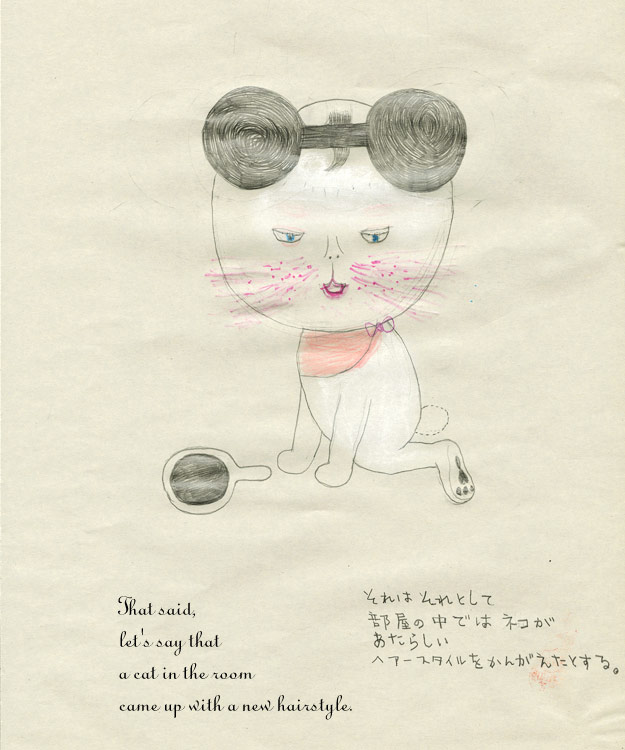 That said,
let's say that
a cat in the room
came up with a new hairstyle.
それは それとして
部屋の中では ネコが
あたらしい
ヘアースタイルをかんがえたとする。